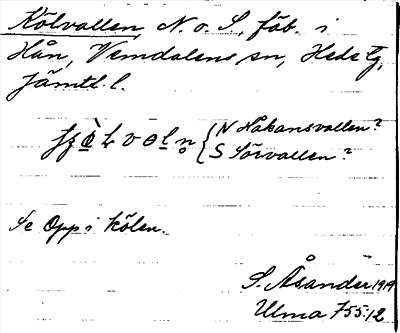 Kölvallen, N. o. S., fäb. i
Hån, Vemdalens sn, Hede tg,
Jämtl. l.
N Håkansvallen?
S Sörvallen?
Se Opp i Kölen.
S. Åsander 1919
Ulma 755:12